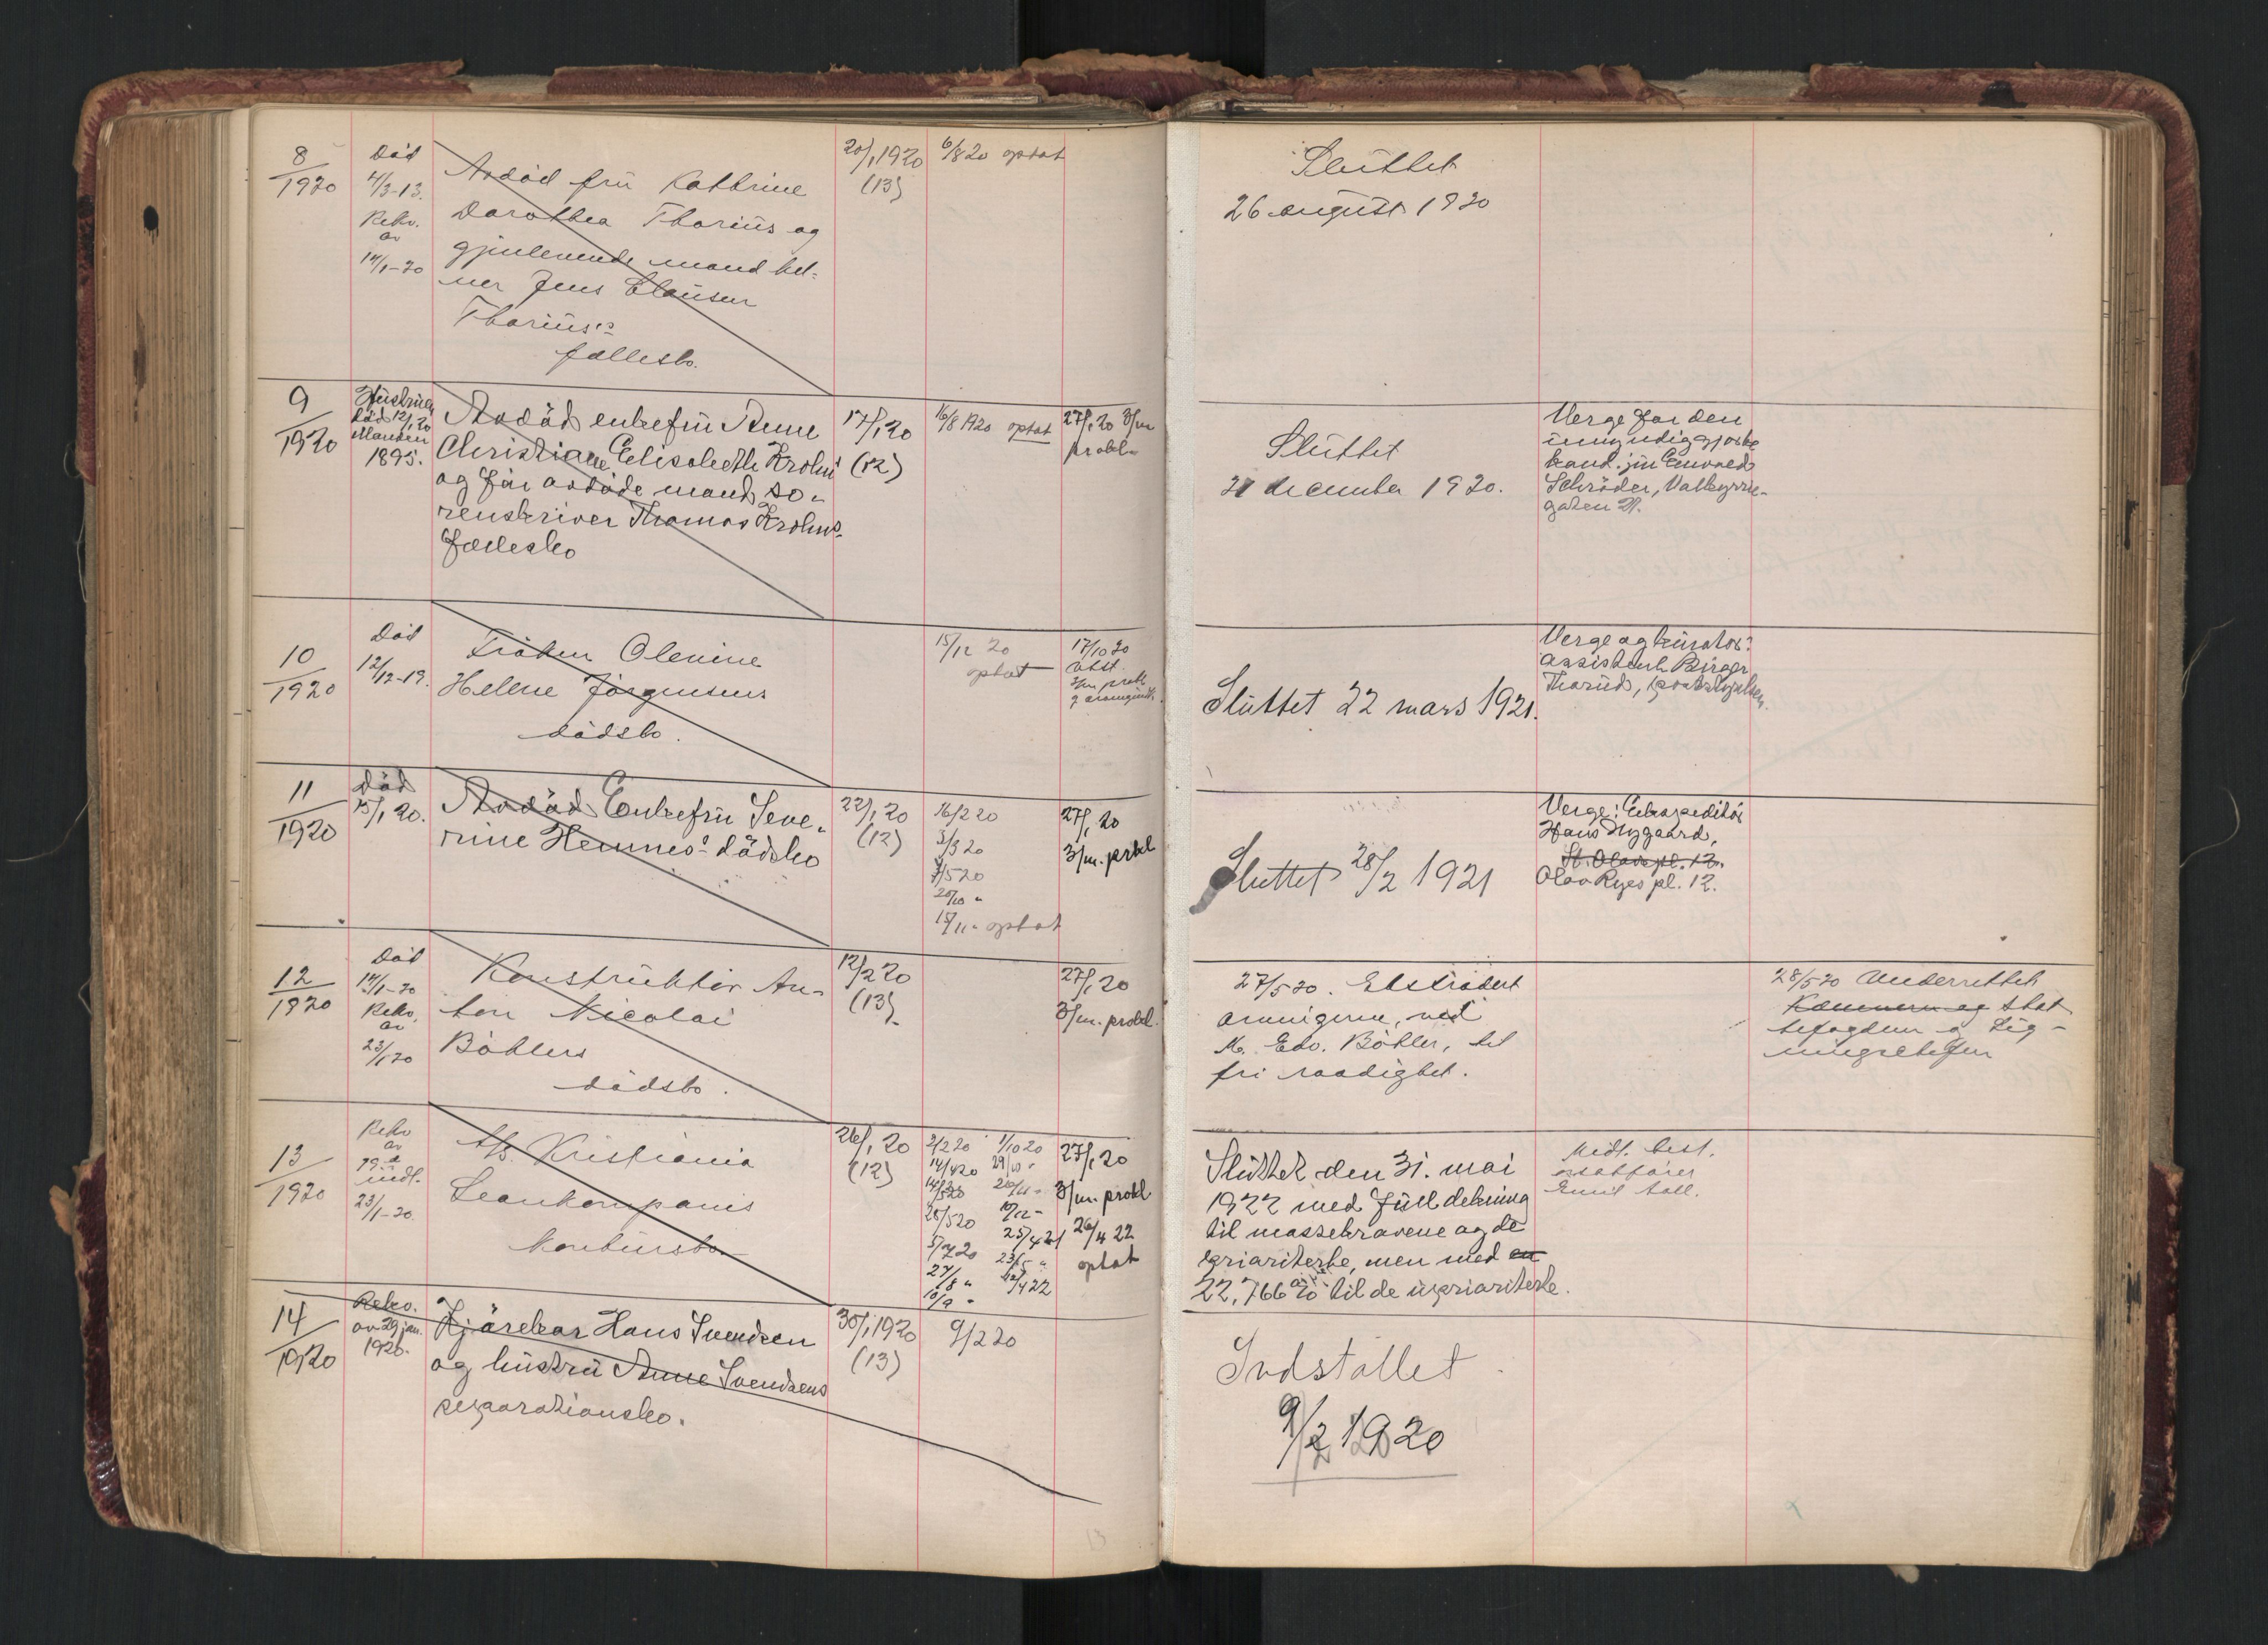 8
1920
Död
4/3-13.
Rekv.
av
14/1-20
Avdöd frü Kathrine
Dorothea Thoriüs og
gjenlevende mand kel-
ner Jens Clausen
Thoriüs's
fællesbo.
20/1 1920
(13)
6/8 20 optat
Slüttet
26 august 1920
9
1920
Hüstrüen
död 12/1 20
Manden
1895.
Avdöde enkefrü Anne
Christiane Elisabeth Krohn
og för avdöde mand so-
renskriver Thomas Krohns
Fællesbo
17/1 20
(12)
16/8 1920 optat
27/1 20 3/m
prokl.
Slüttet
21 december 1920.
Verge for den
ümyndiggjorte
kand. jür
Schröder, Valkyrie-
gaten
10
1920
Död
12/12-19.
Fröken Olenine
Helene Jörgensens
dödsbo.
15/12 20
optat
17/10 20
utst.
3/m prokl
Slüttet 22 mars 1921.
Verge og kürator:
assistent Birger
Thorüd,
11
1920
Död
15/1 20.
Avdöd Enkefrü Seve-
rine Hemnes' dödsbo
22/1 20
(12)
16/2 20
3/3 20
7/5 20
20/10 "
15/11 " optat
27/1 20
3/m. prkl
Sluttet 28/2 1921
Verge: Ekspeditör
Hans Nygaard,
St. Olavs pl. 12.
Olav Ryes pl. 12.
12
1920
Död
14/1-20
Rekv.
av
23/1 20
Konstrüktör An-
ton Nicolai
Böhlers
dödsbo.
12/2 20
(13)
27/1 20
3/m. prokl.
27/5 20. Ekstradert
arvingerne, ved
M. Edv. Böhler, til
fri raadighet.
28/5 20 Underrettet
Kæmneren og skat
tefogden og Lig-
ningschefen
13
1920
Rekv
av
19 a
indl.
23/1-20.
A/S. Kristiania
Leankompanis
konkürsbo
26/1 20
(12)
2/2 20 1/10 20
14/4 20 29/10 "
14/5 20 26/11 "
28/5 20 10/12 "
5/7 20 25/4 21
27/8 " 23/5 "
10/9 " 4 22
27/1 20
3/m. prokl
26/4 22
optat
Slüttet den 31. mai
1922 med füll dekning
til massekravene og de
prioriterte, men med en
22,766 % til de üprioriterte.
Midl. best.
o.r.sakförer
Emil Aall.
14
1920
Rekv.
av 29 jan.
1920.
Kjörekar Hans Svendsen
og hüstrü Anne Svendsens
separationsbo.
30/1 1920
(13)
9/2 20
Indstillet
9/2 1920
13